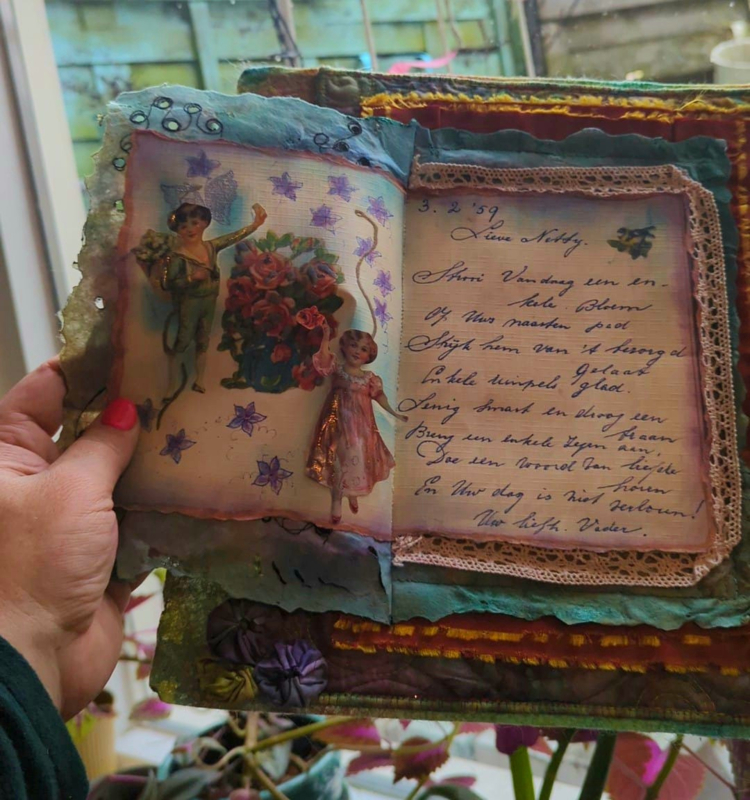 3. 2 '59
Lieve Netty.
Strooi Vandaag een en-
kele Bloem
Op Uws naasten pad
Strijk hem van 't bezorgd
Gelaat
Enkele rimpels glad.
Lenig smart en droog een
traan
Breng een enkele zegen aan,
Doe een woord van liefde
horen
En Uw dag is niet verloren!
Uw liefh. Vader.